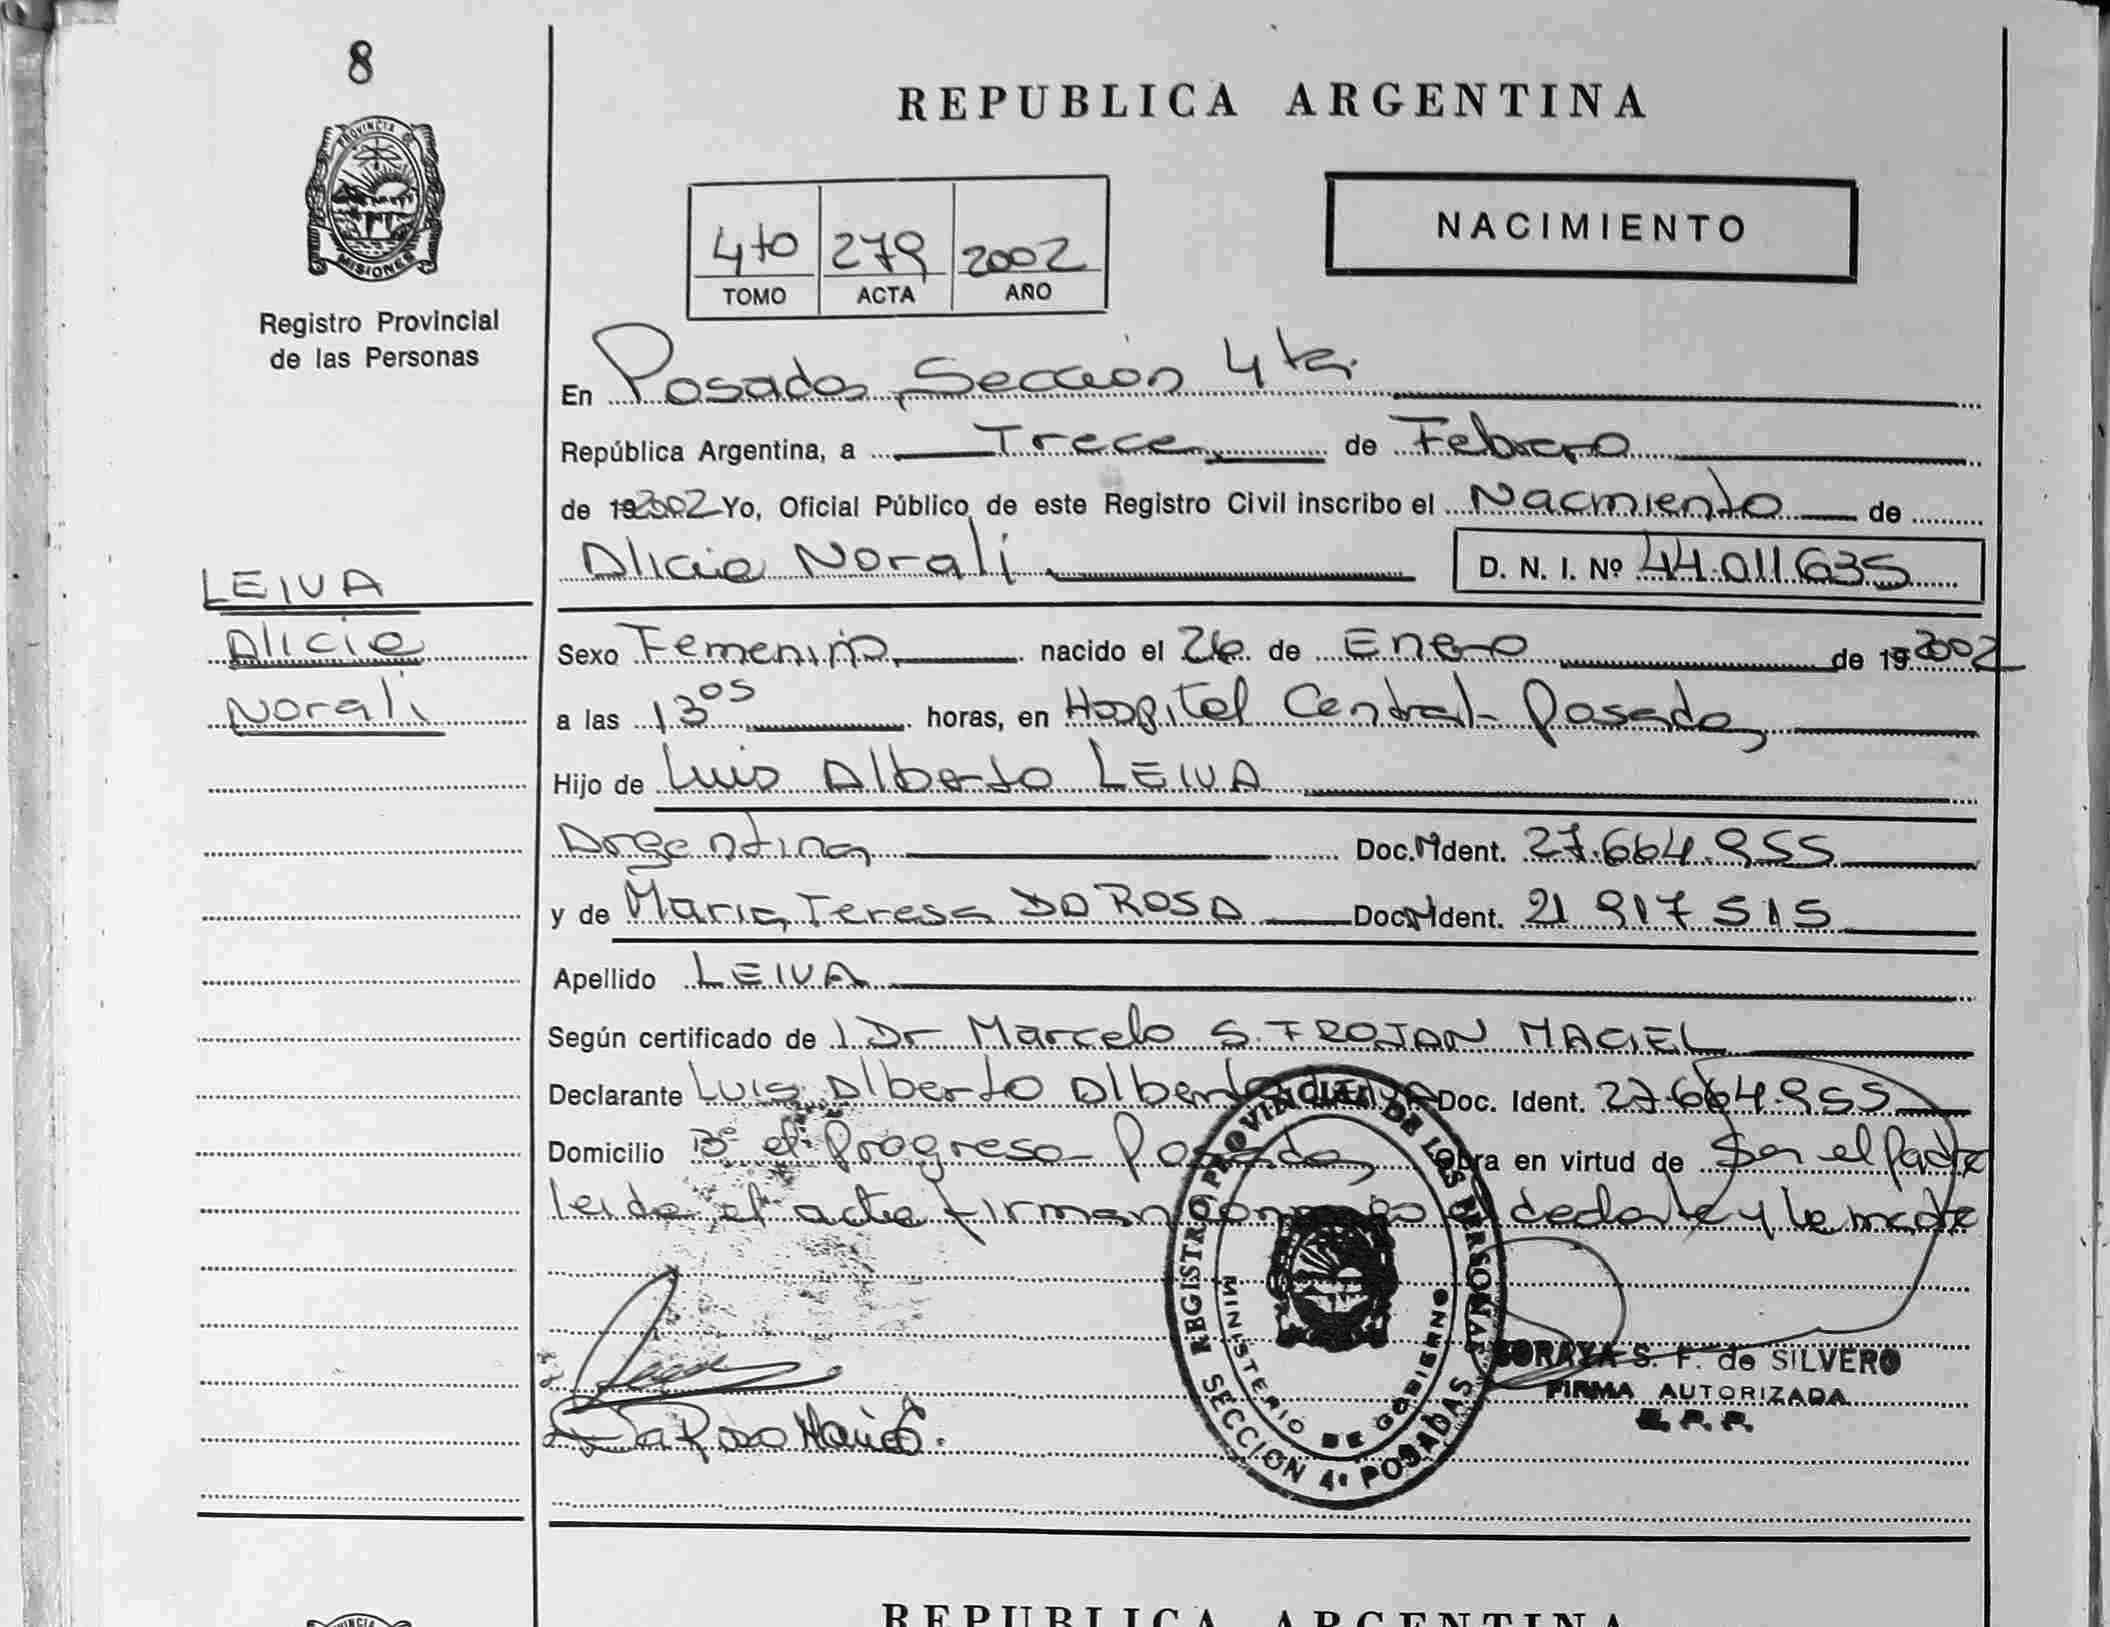 8
PROVINCIA DE
MISIONES
Registro Provincial
de las Personas
LEIVA
Alicia
Norali
REPUBLICA ARGENTINA
4to 279 2002
TOMO ACTA AÑO
NACIMIENTO
En Posadas, Sección 4ta.
República Argentina, a Trece de Febrero
de 192002 Yo, Oficial Público de este Registro Civil inscribo el Nacmiento de
Alicia Norali D. N. I. Nº 44.011.635
Sexo Femenino nacido el 26 de Enero de 192002
a las 13 05 horas, en Hospital Central- Posadas
Hijo de Luis Alberto LEIVA
Argentina Doc. Ident. 27.664.955
y de Maria Teresa DA ROSA Doc. Ident. 21 917 515
Apellido LEIVA
Según certificado de Dr Marcelo S. TROJAN MACIEL
Declarante Luis Alberto Alberto Doc. Ident. 27.664.955
Domicilio Bº el Progreso Posadas Obra en virtud de Ser el Padre
leida el acta firman el y la madre
REGISTRO PROVINCIAL DE LAS PERSONAS
MINISTERIO DE GOBIERNO
SECCION 4ª POSADAS
SORAYA S. F. de SILVERO
FIRMA AUTORIZADA
Da Rosa
REPUBLICA ARGENTINA